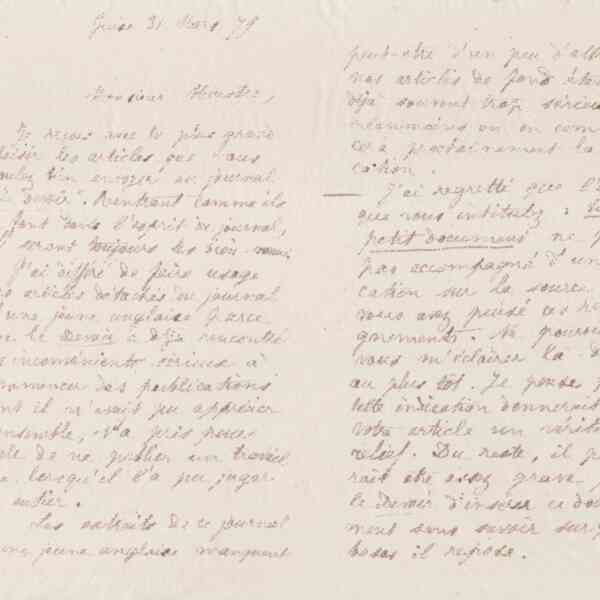 Guise 31 Mars 79
Monsieur
Je reçois avec le plus grand
plaisir les articles que vous
voulez bien envoyer au journal
"le Devoir". Rentrant comme ils
font dans l'esprit du journal,
seront toujours les bien venus.
J'ai différé de faire usage
articles détachés du journal
d'une jeune anglaise parce
que le Devoir a déjà rencontré
inconvénients sérieux à
commencer des publications
dont il n'avait pu apprécier
l'ensemble, n'a pris pour
de ne publier un travail
lorsqu'il l'a pu juger
entier.
Les extraits de ce journal
d'une jeune anglaise manquent
peut-être d'un peu d'
nos articles de fond étant
déjà souvent trop sérieux
on com
cera prochainement la
cation.
J'ai regretté que l'
que vous intitulez :
petit document ne
pas accompagné d'un
cation sur la source
vous avez puisé ces
gnements. Ne pourriez
vous m'éclairer là-d
au plus tôt. Je pense
cette indication donnerait
votre article un vérit
relief. Du reste, il p
rait être assez grave
le Devoir d'insérer ce do
ment sans savoir sur
bases il repose.